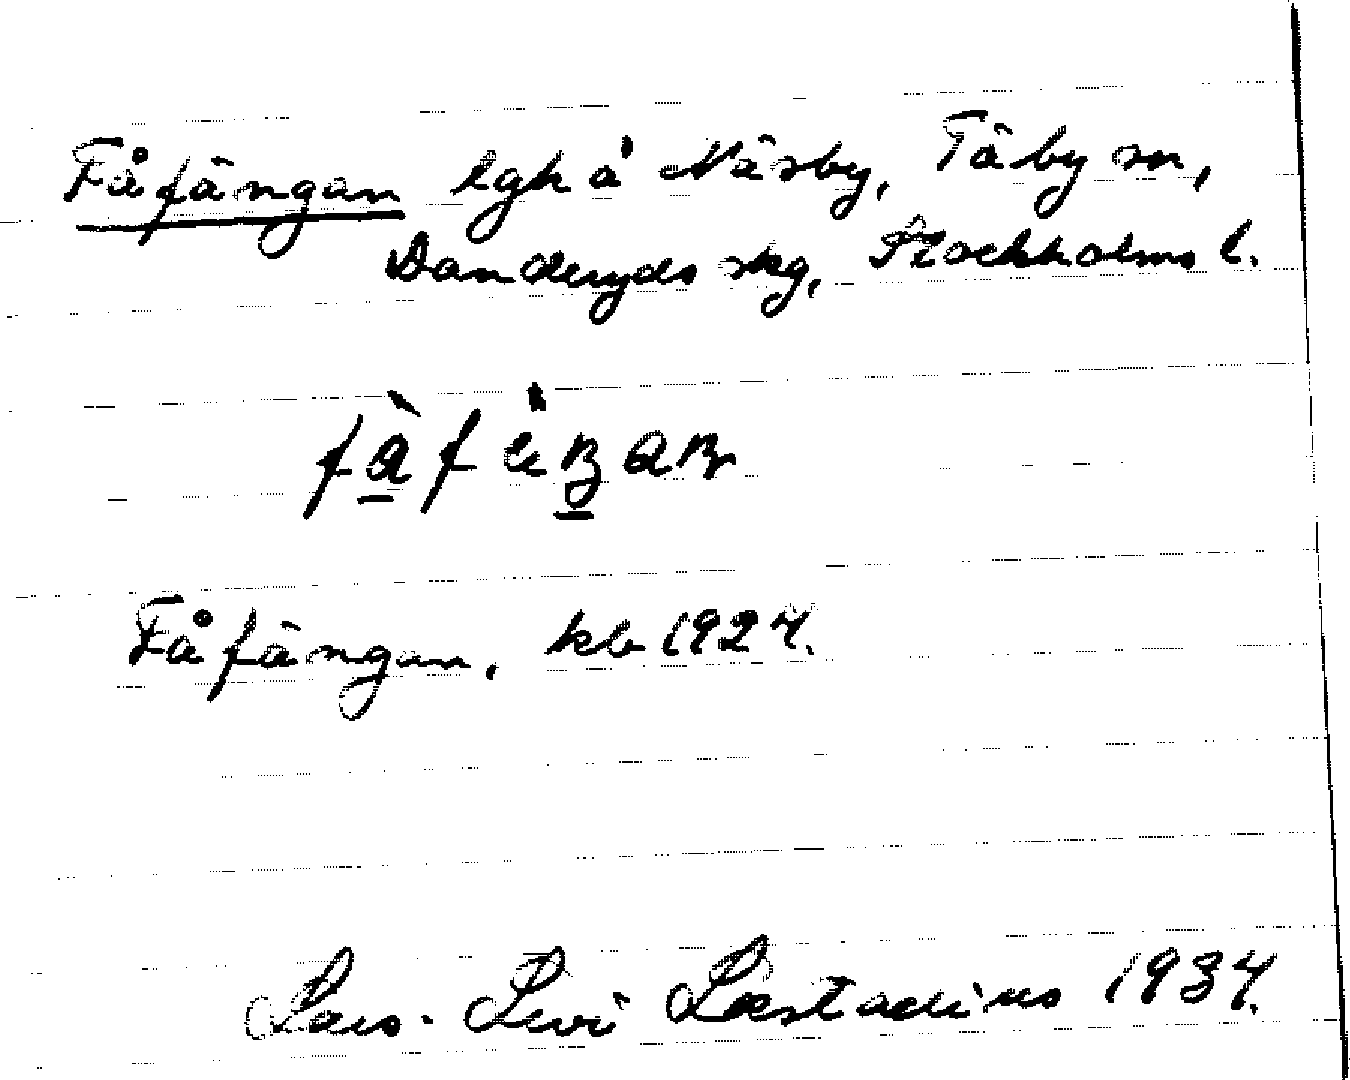 Fåfängan lgh å Näsby, Täby sn,
Danderyds skg, Stockholms l.
Fåfängan, kb 1924.
Lars-Levi Læstadius 1934.